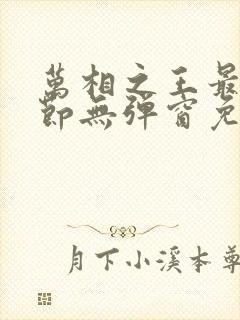 萬相之王最
節無彈窗免
月下小溪本尊